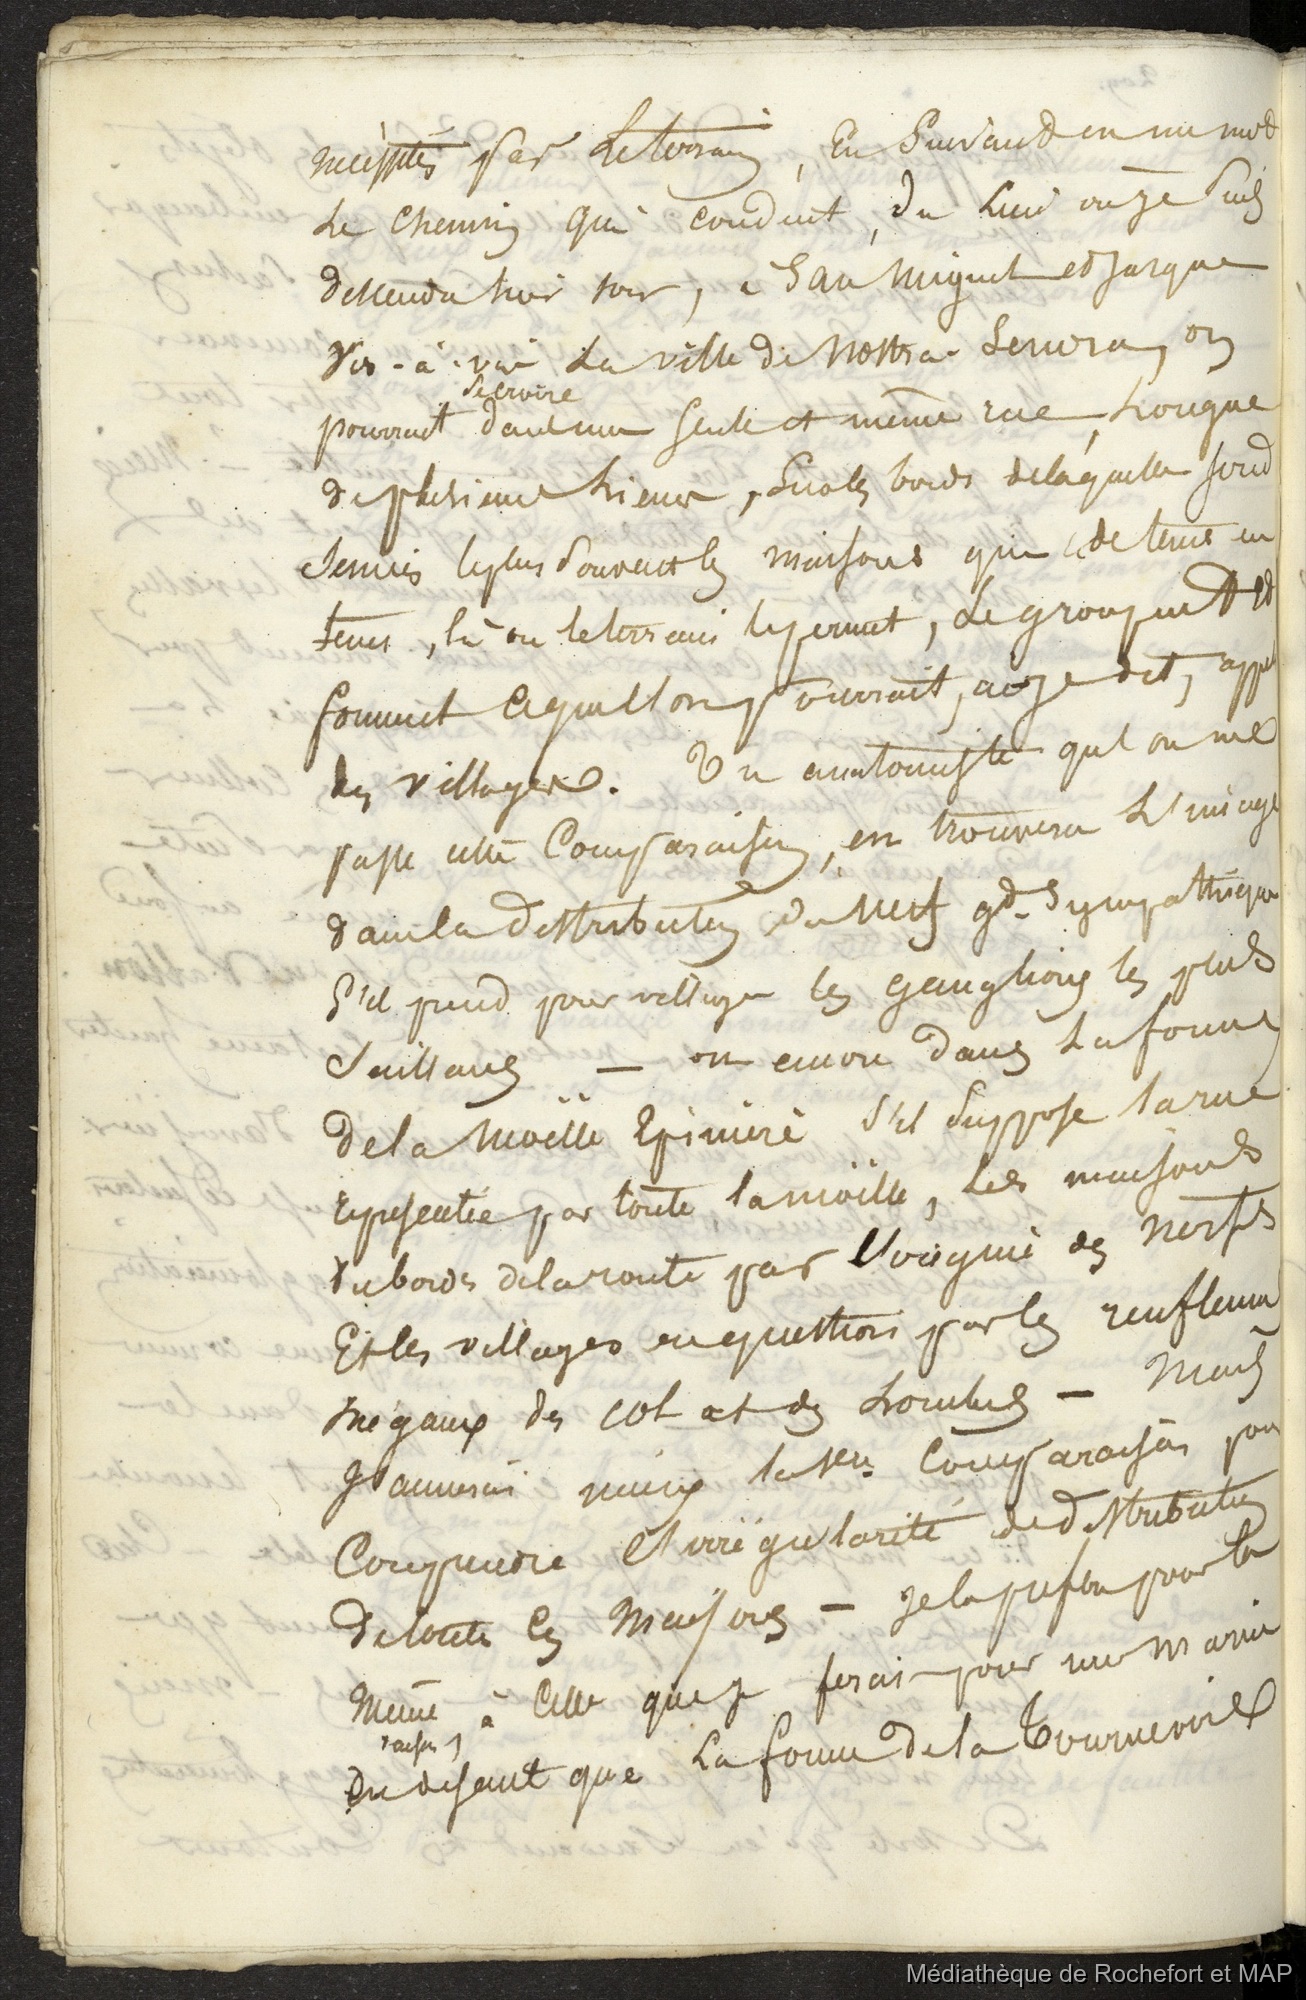 nécéssités par Le terrain, En Suivant en un mot
Le chemin qui conduit, du Lieu où je Suis
descendu hier soir, à San Miguel et jusque
Vis-à-vis La ville de Nostra-Senora, on
se croire
pourrait dans une Seule et même rue, Longue
de plusieurs Lieues, Sur les bords delaquelle sont
Semées le plus Souvent les maisons qui de tems en
tems, là où le terrain le permet, Se groupent et
forment ce que l'on pourrait, ai-je dit, appel
des villages. Un anatomiste qu'on me
passe cette Comparaison, en trouvera L'image
dans la distribution du Nerf gd. Sympathique
S'il prend pour villages les ganglions les plus
Saillans — ou encore dans La forme
de la Moëlle Epinière S'il Suppose la rue
représentée par toute la moëlle, Les maisons
du bords de la route par l'origine des Nerfs
Et les villages en question par les renflemens
inégaux des col et des Lombes — Mais
J'aimerais mieux la 1ere Comparaison pour
Comprendre l'irrégularité de distribution
de toutes les Maisons — je la préfère pour la
Même à Celle que je ferais pour un Marin
raison,
En disant que La forme de la Tournevire
Médiathèque de Rochefort et MAP